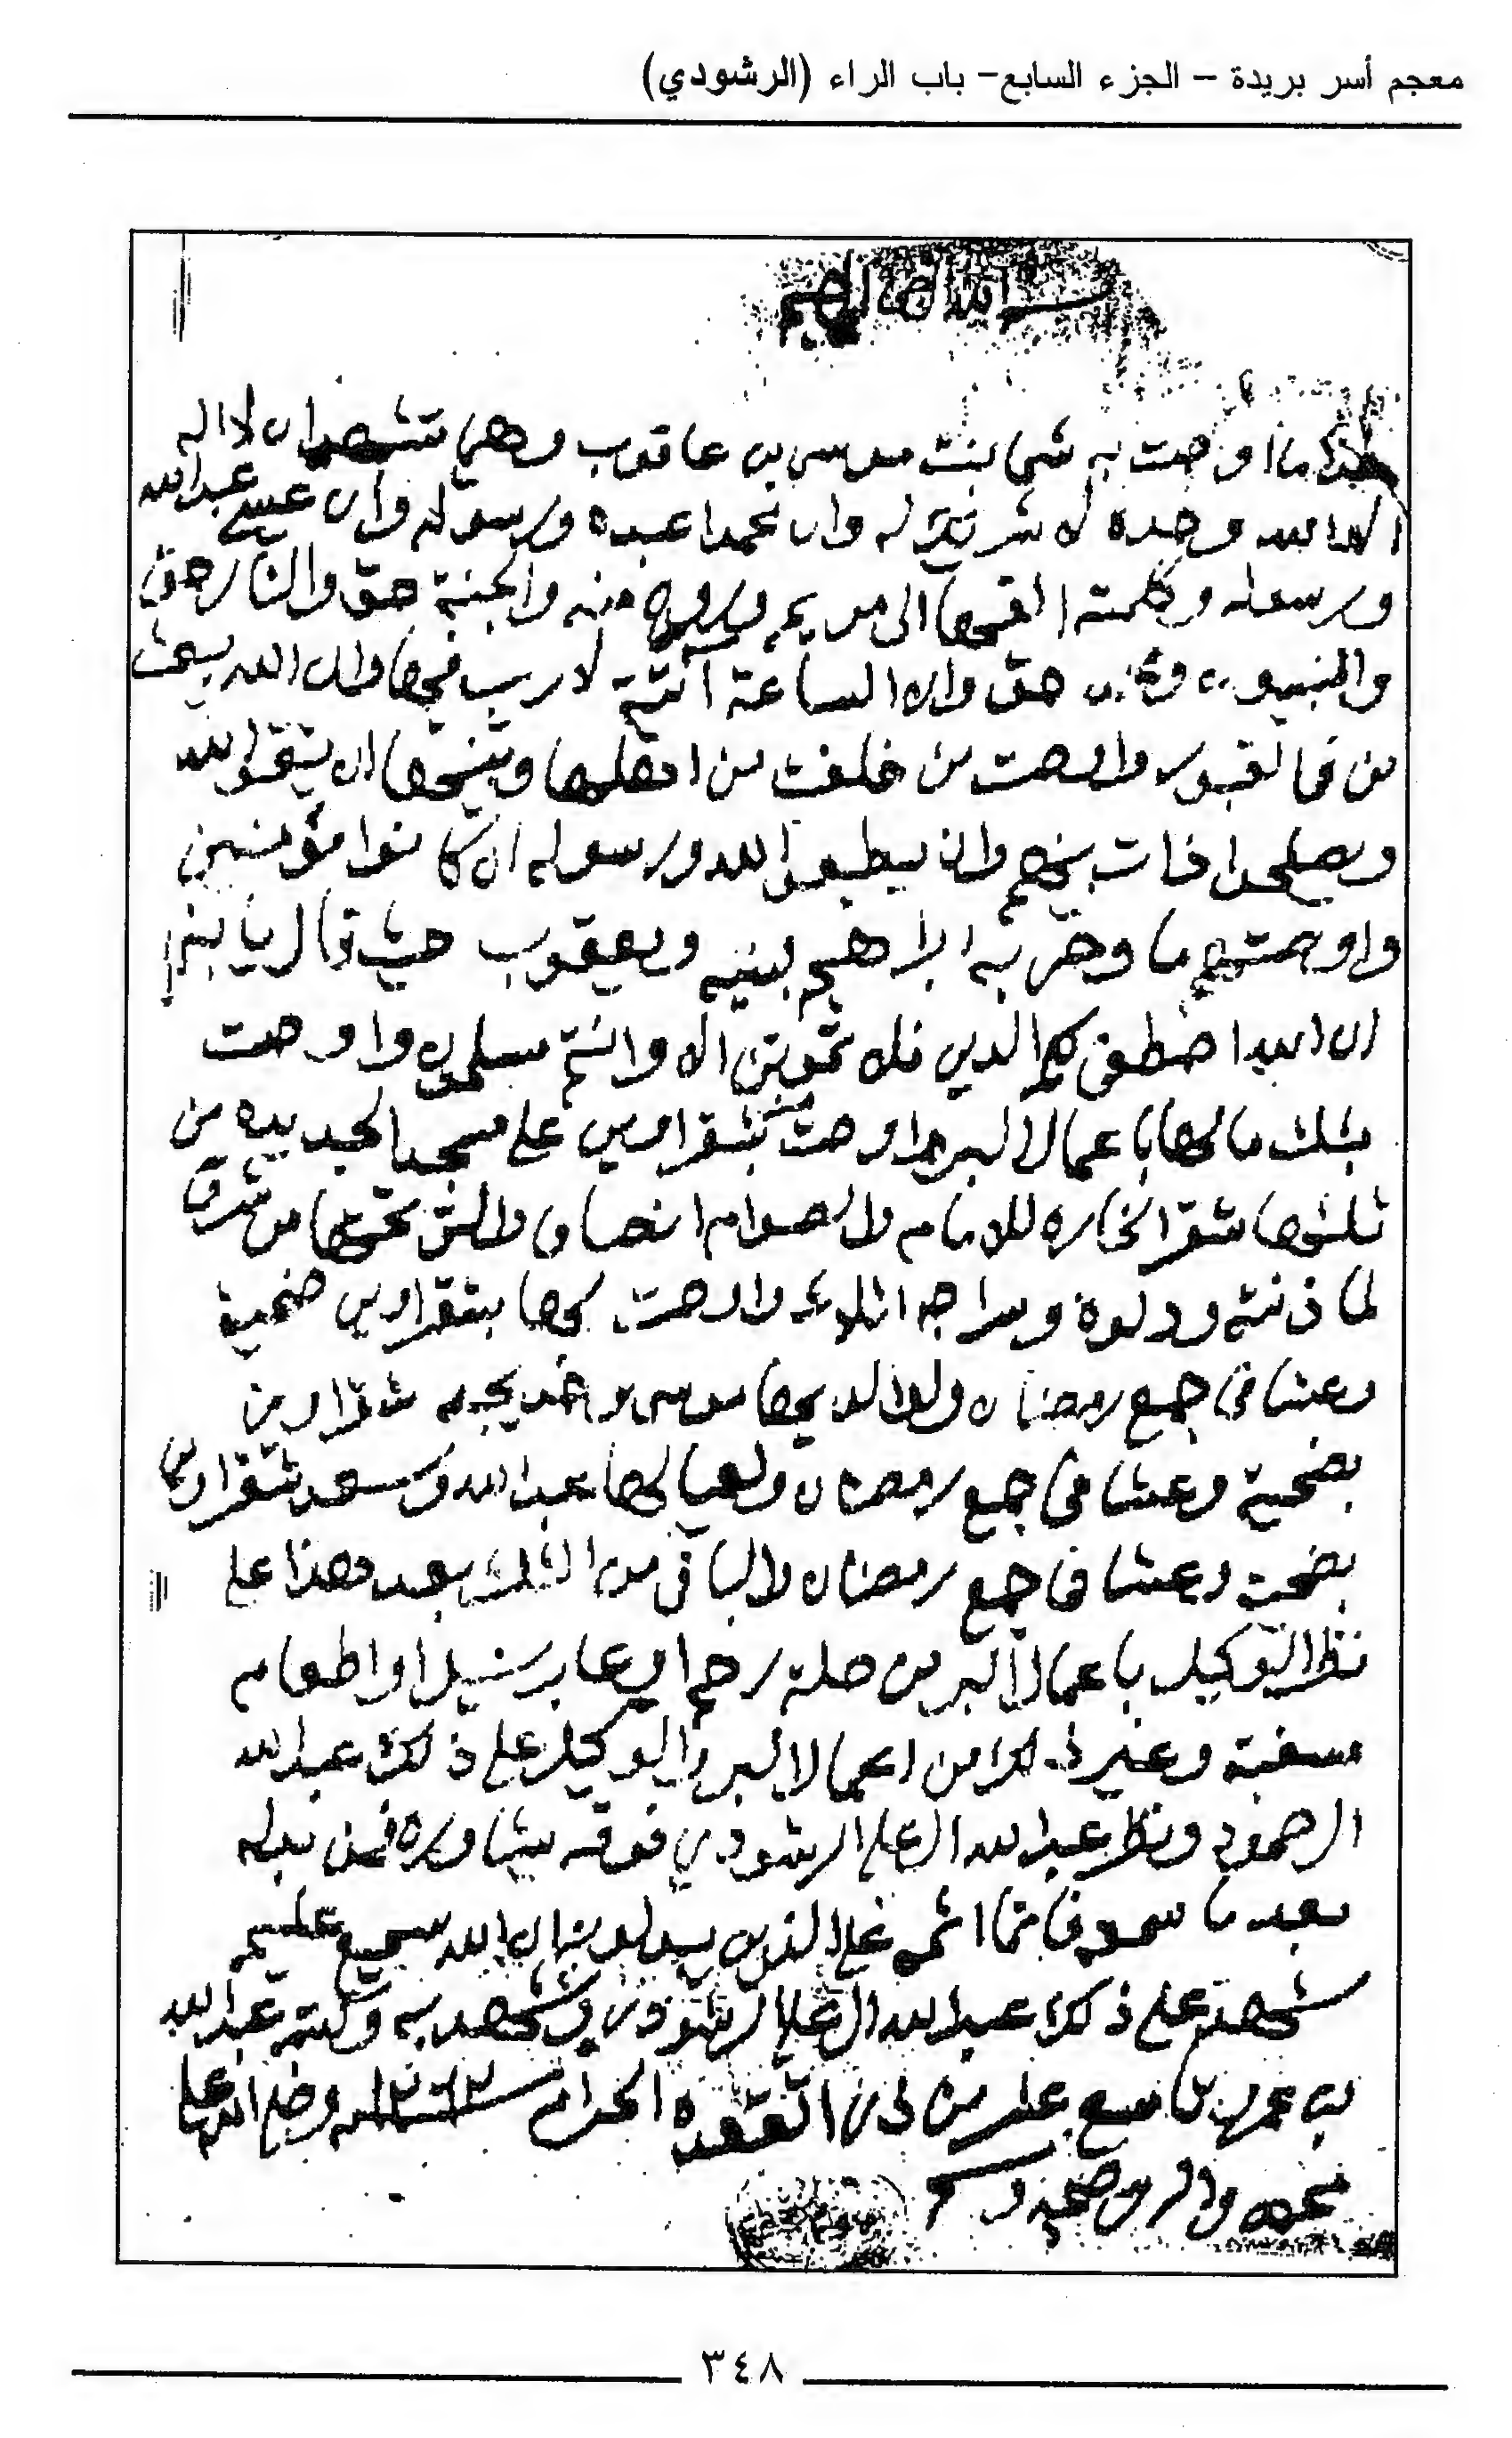 معجم أسر بريدة – الجزء السابع– باب الراء (الرشودي)
بسم الله الرحمن الرحيم
هذا ما اوصت به شما بنت موسى بن عاقوب وهي تشهد ان لا اله
الا الله وحده لا شريك له وان محمدا عبده ورسوله وان عيسى عبدالله
ورسوله وكلمته القىها الى مريم وروح منه والجنة حق والنار حق
والنبيون حق وان الساعة آتية لا ريب فيها وان الله يبعث
من في القبور واوصت من خلفت من اهلها وبنيها ان يتقوا الله
ويصلحوا ذات بينهم وان يطيعوا الله ورسوله ان كانوا مؤمنين
واوصتهم ما وصى به ابراهيم بنيه ويعقوب حيث قال يا بني
ان الله اصطفى لكم الدين فلا تموتن الا وانتم مسلمون واوصت
بثلث مالها باعمال البر واوصت بشقراوين على مسجد الجديده من
ثلثها شقرا للامام والصوام انصاف والتي تحتها من شرق
لماذنته ودلوه وسراجه واوصت لها بشقراوين ضحية
وعشا في جمع رمضان ولوالديها موسى شقراوين
بضحية وعشا في جمع رمضان ولعيالها عبدالله وسعد شقراوين
بضحية وعشا في جمع رمضان والباقي من الثلث بعد هذا على
نظر الوكيل باعمال البر من صلة رحم او عابر سبيل او اطعام
مسغبة وغير ذلك من اعمال البر والوكيل على ذلك عبدالله
الرحمودي ونظر عبدالله العلي الرشودي فوقه يشاوره فمن بدله
بعد ما سمعه فانما اثمه على الذين يبدلونه ان الله سميع عليم
شهد على ذلك عبدالله العلي الرشودي وشهد به وكتبه عبدالله
بن عمر من ذي القعده الحرام ١٢٦٣ وصلى الله على
محمد واله وصحبه وسلم
٣٤٨